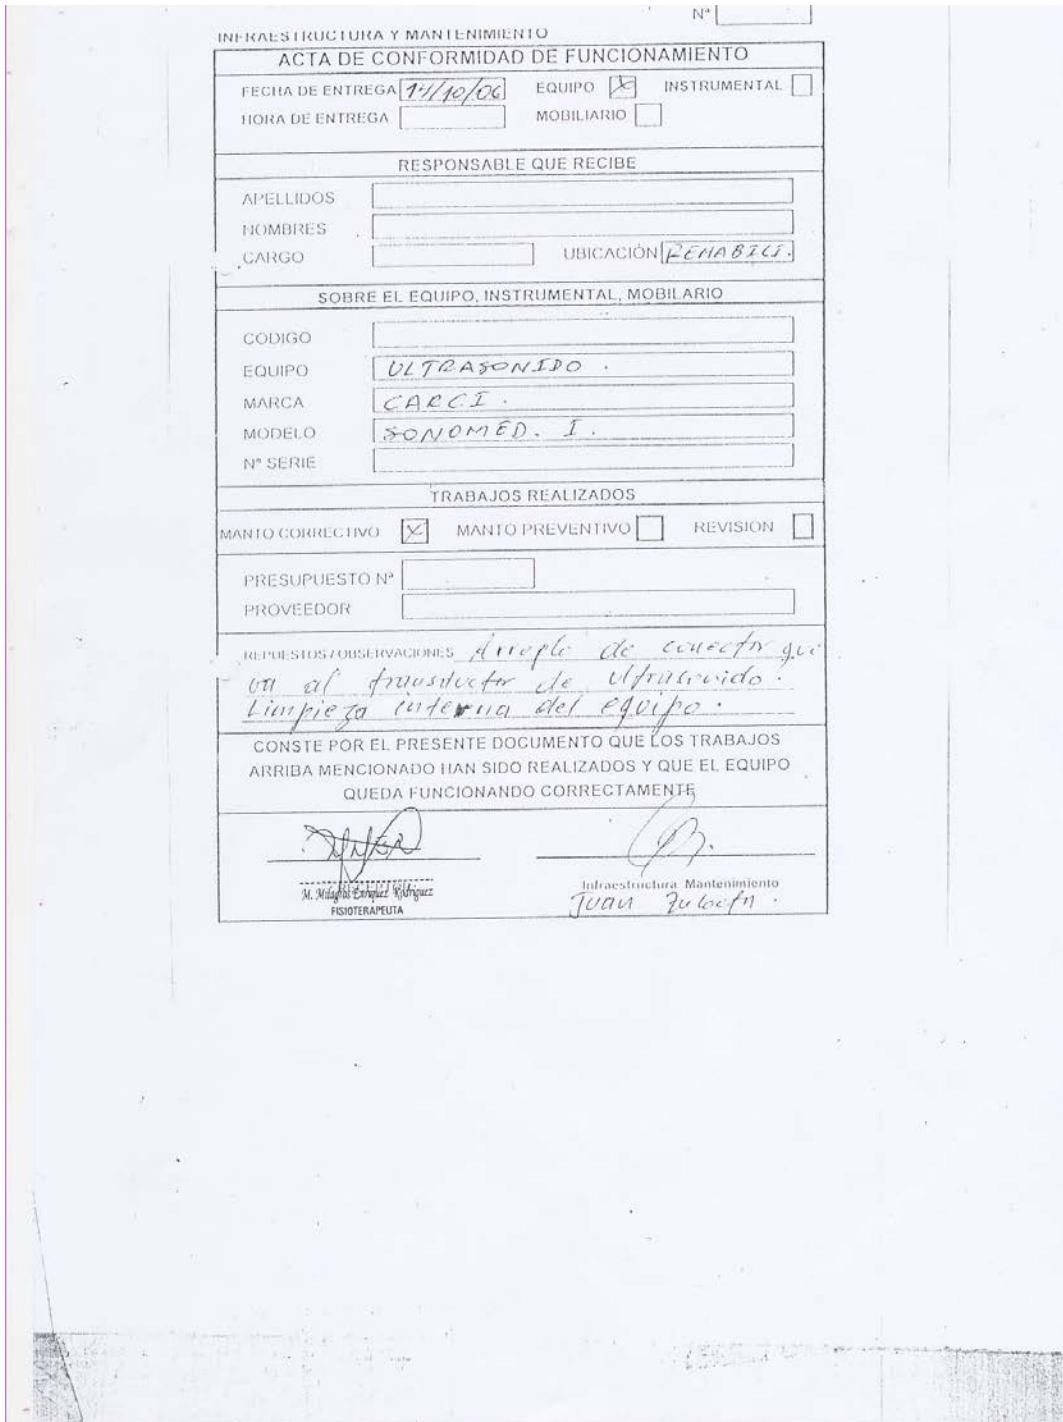 Nª
INFRAESTRUCTURA Y MANTENIMIENTO
ACTA DE CONFORMIDAD DE FUNCIONAMIENTO
FECHA DE ENTREGA 14/10/06 EQUIPO X INSTRUMENTAL
HORA DE ENTREGA MOBILIARIO
RESPONSABLE QUE RECIBE
APELLIDOS
NOMBRES
CARGO UBICACIÓN REHABILI.
SOBRE EL EQUIPO, INSTRUMENTAL, MOBILARIO
CODIGO
EQUIPO ULTRASONIDO.
MARCA CARCI.
MODELO SONOMED. I.
Nª SERIE
TRABAJOS REALIZADOS
MANTO CORRECTIVO X MANTO PREVENTIVO REVISION
PRESUPUESTO Nª
PROVEEDOR
REPUESTOS / OBSERVACIONES Arreglo de conector que
va al transductor de ultrasonido.
Limpieza interna del equipo.
CONSTE POR EL PRESENTE DOCUMENTO QUE LOS TRABAJOS
ARRIBA MENCIONADO HAN SIDO REALIZADOS Y QUE EL EQUIPO
QUEDA FUNCIONANDO CORRECTAMENTE
M. Milagros Enriquez Rodriguez Infraestructura Mantenimiento
FISIOTERAPEUTA Juan